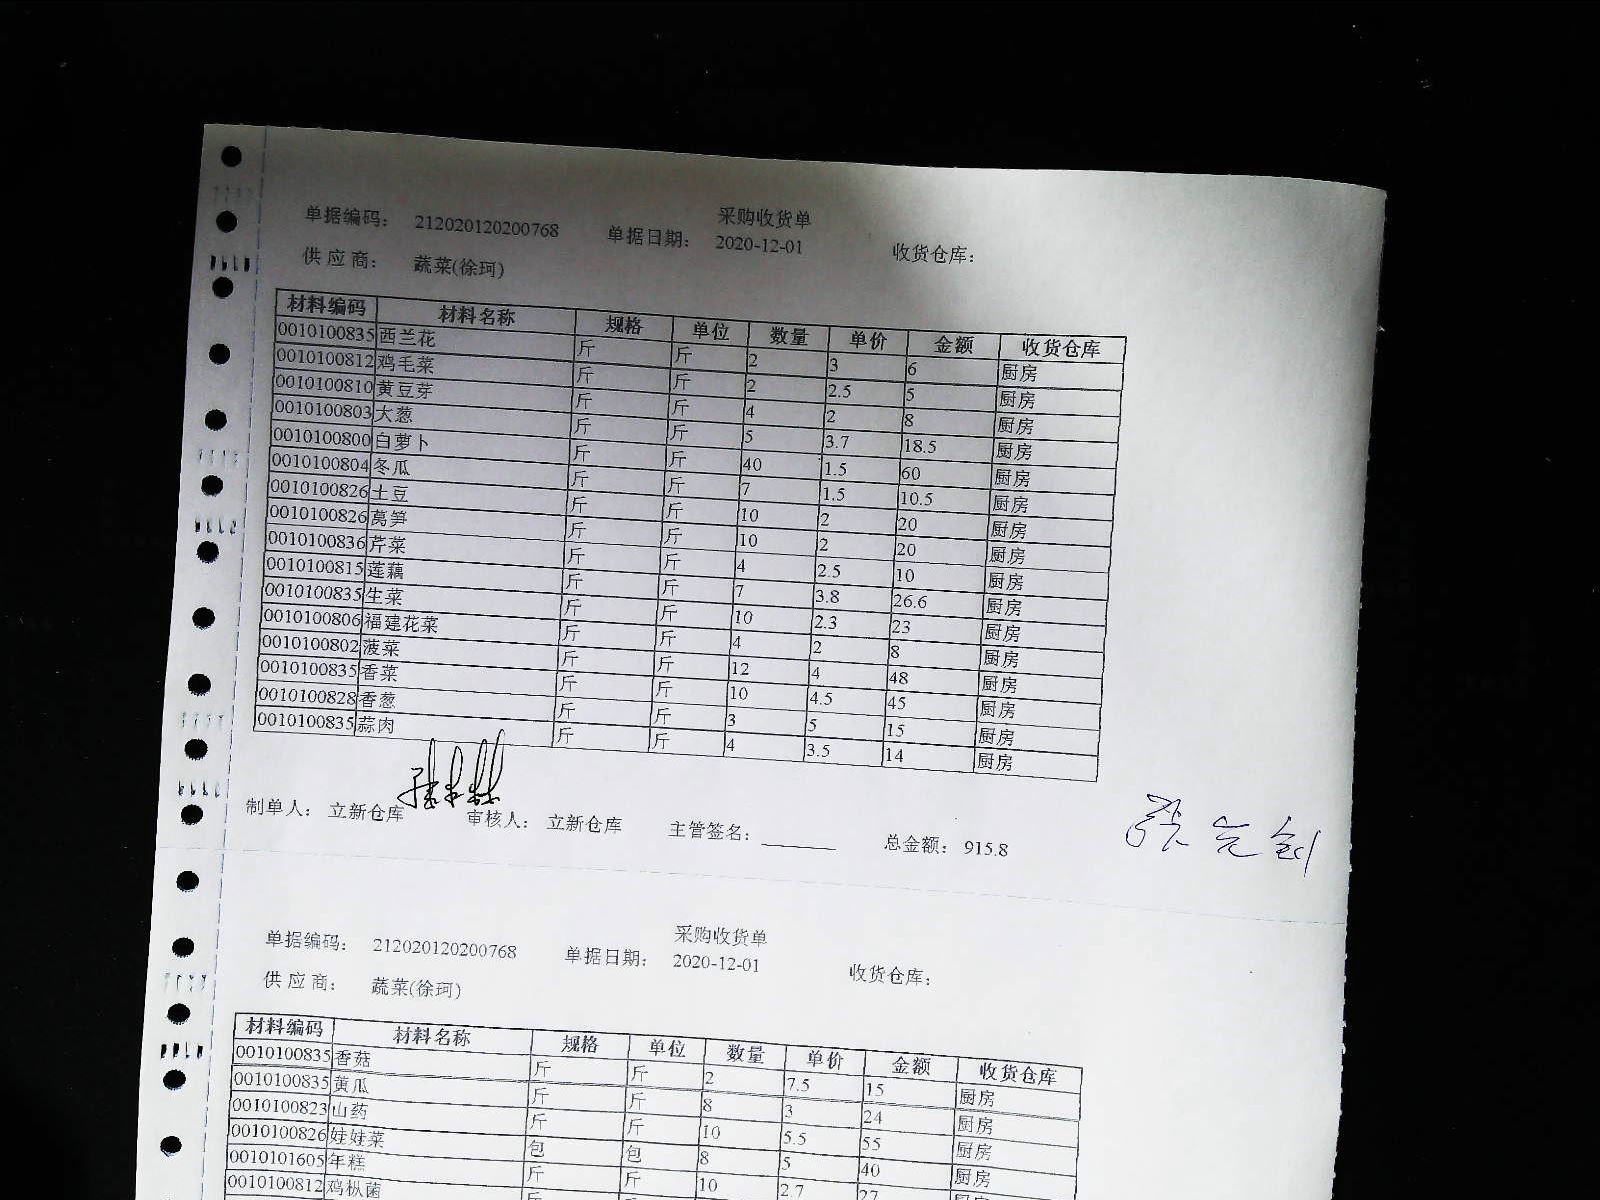 采购收货单
单据编码： 212020120200768 单据日期： 2020-12-01 收货仓库：
供应商： 蔬菜(徐珂)
材料编码 材料名称 规格 单位 数量 单价 金额 收货仓库
0010100835 西兰花 斤 斤 2 3 6 厨房
0010100812 鸡毛菜 斤 斤 2 2.5 5 厨房
0010100810 黄豆芽 斤 斤 4 2 8 厨房
0010100803 大葱 斤 斤 5 3.7 18.5 厨房
0010100800 白萝卜 斤 斤 40 1.5 60 厨房
0010100804 冬瓜 斤 斤 7 1.5 10.5 厨房
0010100826 土豆 斤 斤 10 2 20 厨房
0010100826 莴笋 斤 斤 10 2 20 厨房
0010100836 芹菜 斤 斤 4 2.5 10 厨房
0010100815 莲藕 斤 斤 7 3.8 26.6 厨房
0010100835 生菜 斤 斤 10 2.3 23 厨房
0010100806 福建花菜 斤 斤 4 2 8 厨房
0010100802 菠菜 斤 斤 12 4 48 厨房
0010100835 香菜 斤 斤 10 4.5 45 厨房
0010100828 香葱 斤 斤 3 5 15 厨房
0010100835 蒜肉 斤 斤 4 3.5 14 厨房
制单人： 立新仓库 审核人： 立新仓库 主管签名： 总金额： 915.8
采购收货单
单据编码： 212020120200768 单据日期： 2020-12-01 收货仓库：
供应商： 蔬菜(徐珂)
材料编码 材料名称 规格 单位 数量 单价 金额 收货仓库
0010100835 香菇 斤 斤 2 7.5 15 厨房
0010100835 黄瓜 斤 斤 8 3 24 厨房
0010100823 山药 斤 斤 10 5.5 55 厨房
0010100826 娃娃菜 包 包 8 5 40 厨房
0010101605 年糕 斤 斤 10 2.7 27
0010100812 鸡枞菌